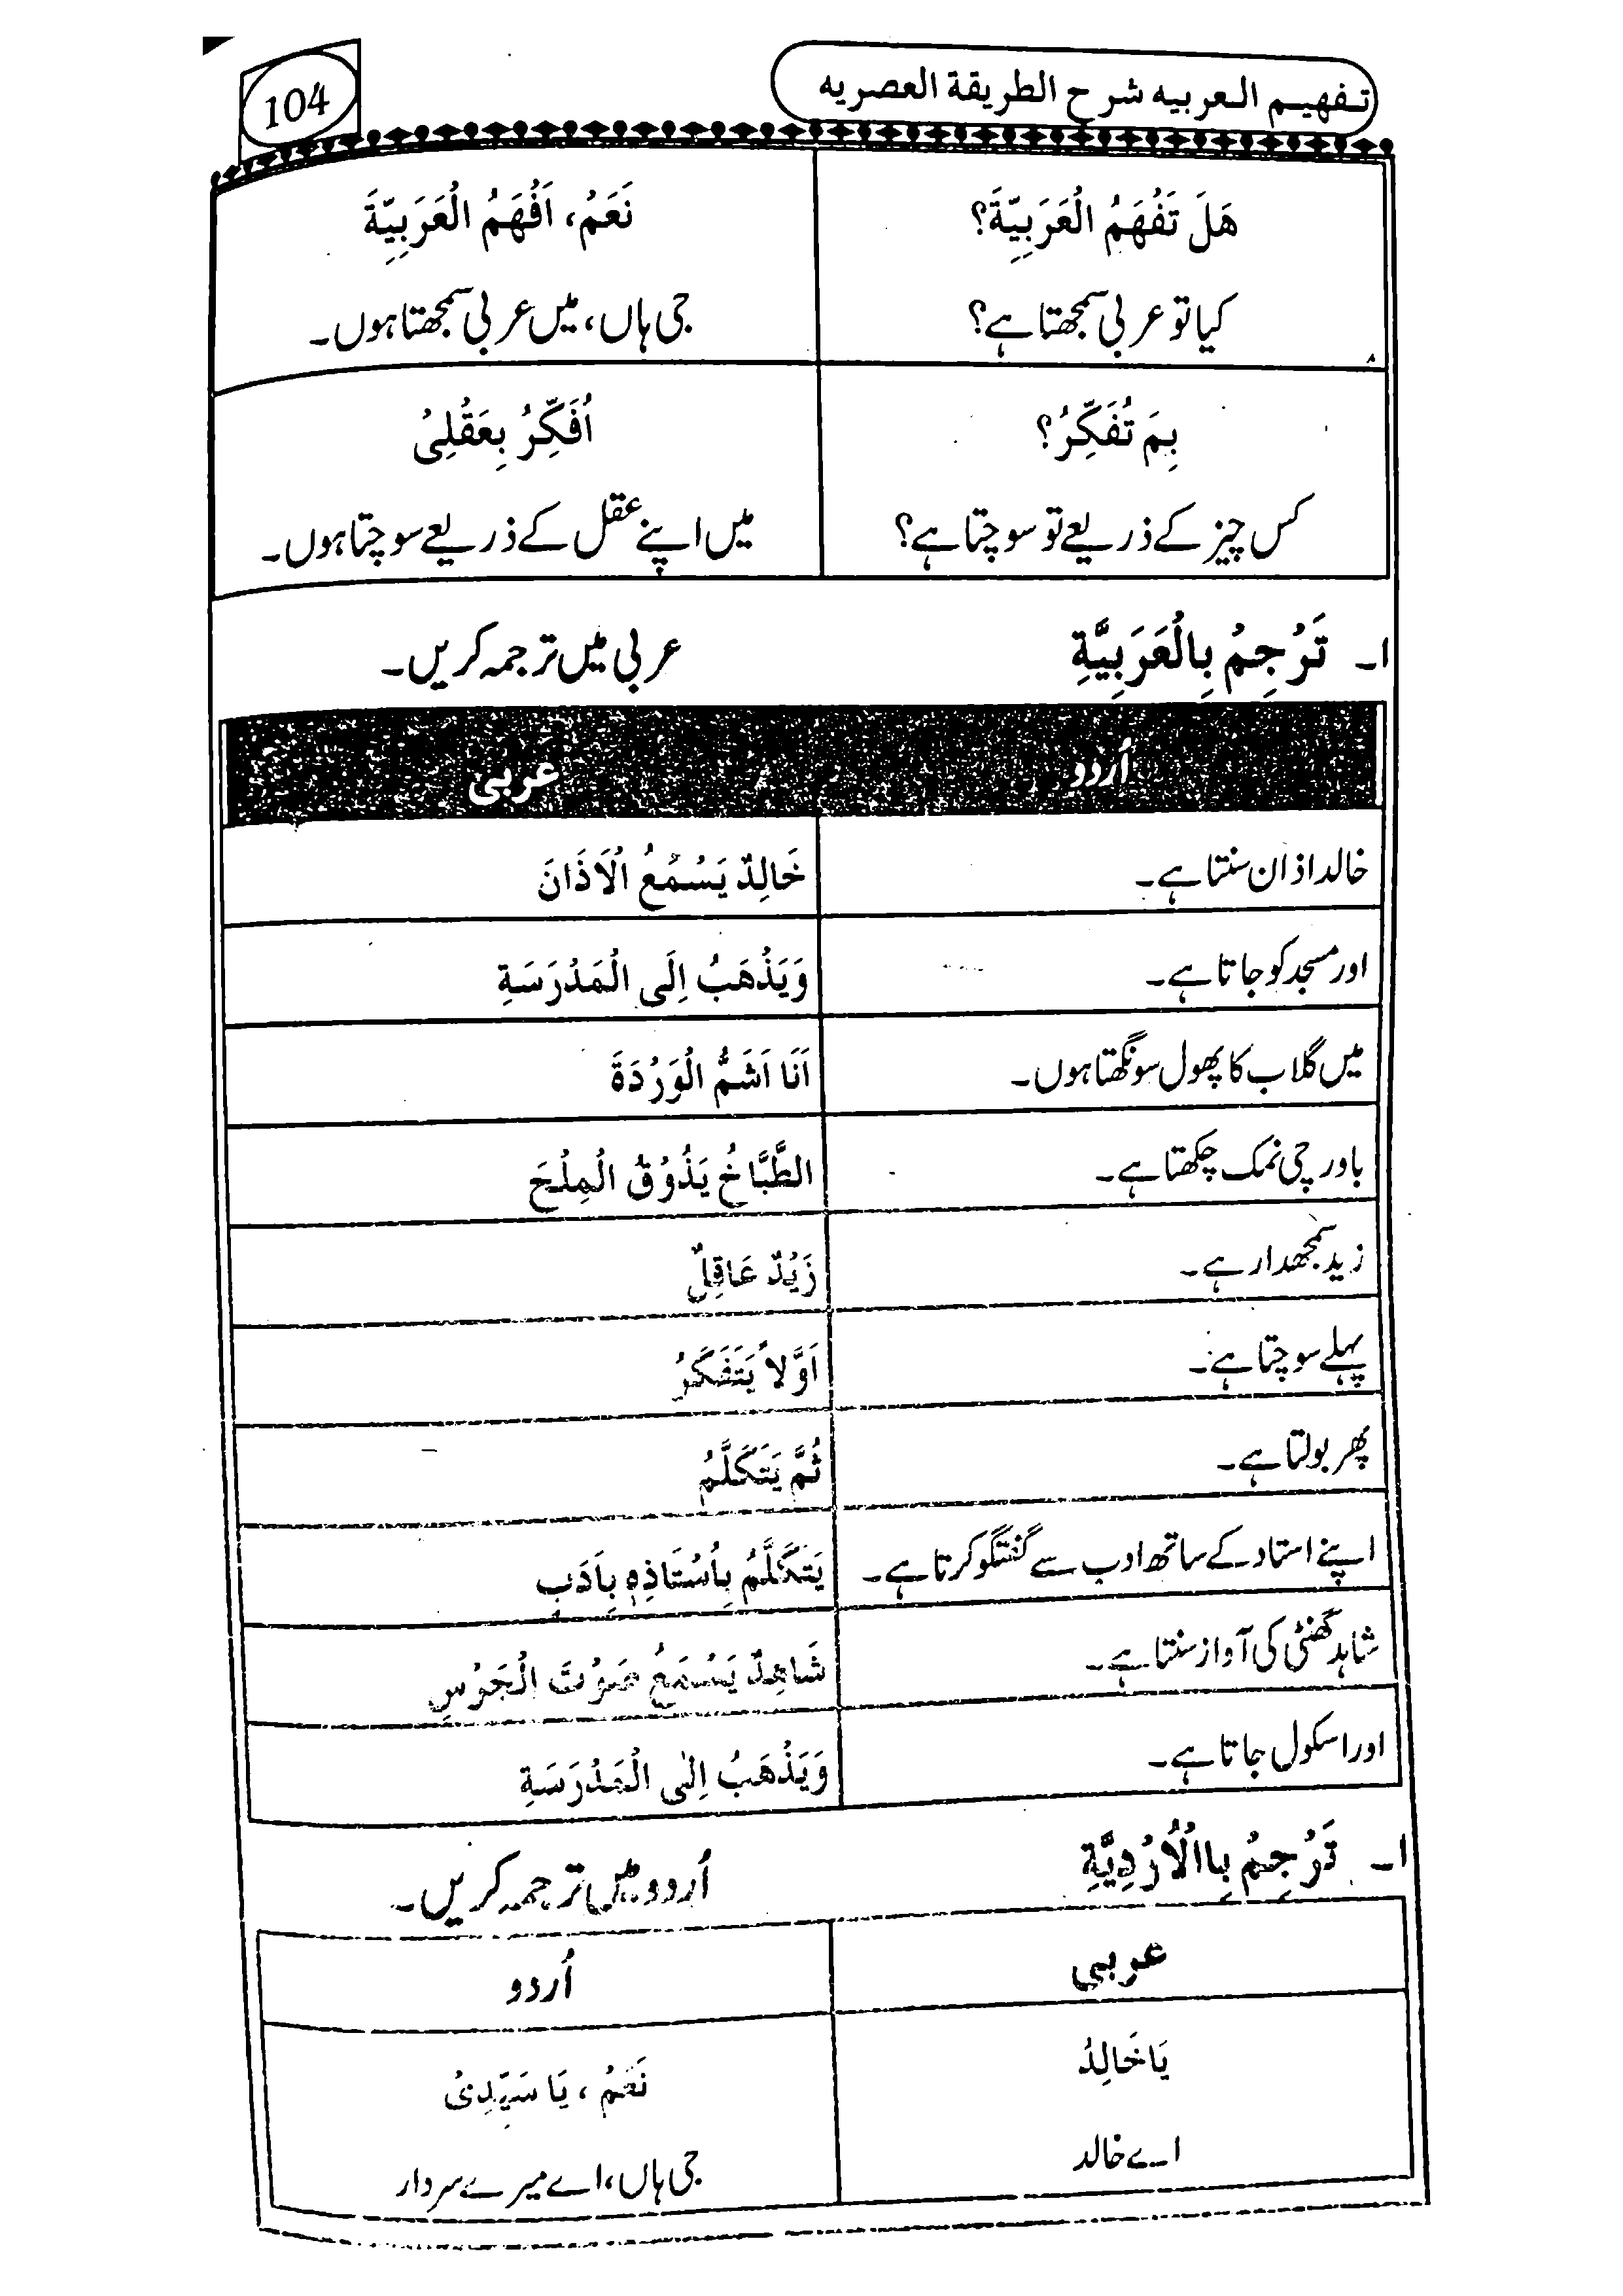 تفهيم العربيه شرح الطريقة العصريه
104
هَلَ تَفْهَمُ الْعَرَبِيَّةَ؟
نَعَمْ، اَفْهَمُ الْعَرَبِيَّةَ
کیا تو عربی سمجھتا ہے؟
جی ہاں، میں عربی سمجھتا ہوں۔
بِمَ تُفَكِّرُ؟
اُفَكِّرُ بِعَقْلِيْ
کس چیز کے ذریعے تو سوچتا ہے؟
میں اپنے عقل کے ذریعے سوچتا ہوں۔
۱۔ تَرْجِمْ بِالْعَرَبِيَّةِ
عربی میں ترجمہ کریں۔
اُردو
عربی
خالد اذان سنتا ہے۔
خَالِدٌ يَسْمَعُ الْاَذَانَ
اور مسجد کو جاتا ہے۔
وَيَذْهَبُ اِلَى الْمَدْرَسَةِ
میں گلاب کا پھول سونگھتا ہوں۔
اَنَا اَشَمُّ الْوَرْدَةَ
باورچی نمک چکھتا ہے۔
الطَّبَّاخُ يَذُوْقُ الْمِلْحَ
زید سمجھدار ہے۔
زَيْدٌ عَاقِلٌ
پہلے سوچتا ہے۔
اَوَّلاً يَتَفَكَّرُ
پھر بولتا ہے۔
ثُمَّ يَتَكَلَّمُ
اپنے استاد کے ساتھ ادب سے گفتگو کرتا ہے۔
يَتَكَلَّمُ بِاُسْتَاذِهٖ بِاَدَبٍ
شاہد گھنٹی کی آواز سنتا ہے۔
شَاهِدٌ يَسْمَعُ صَوْتَ الْجَرْسِ
اور اسکول جاتا ہے۔
وَيَذْهَبُ اِلٰى الْمَدْرَسَةِ
۱۔ تَرْجِمْ بِاالْاُرْدِيَّةِ
اُردو میں ترجمہ کریں۔
عربی
اُردو
يَا خَالِدُ
نَعَمْ، يَا سَيِّدِيْ
اے خالد
جی ہاں، اے میرے سردار